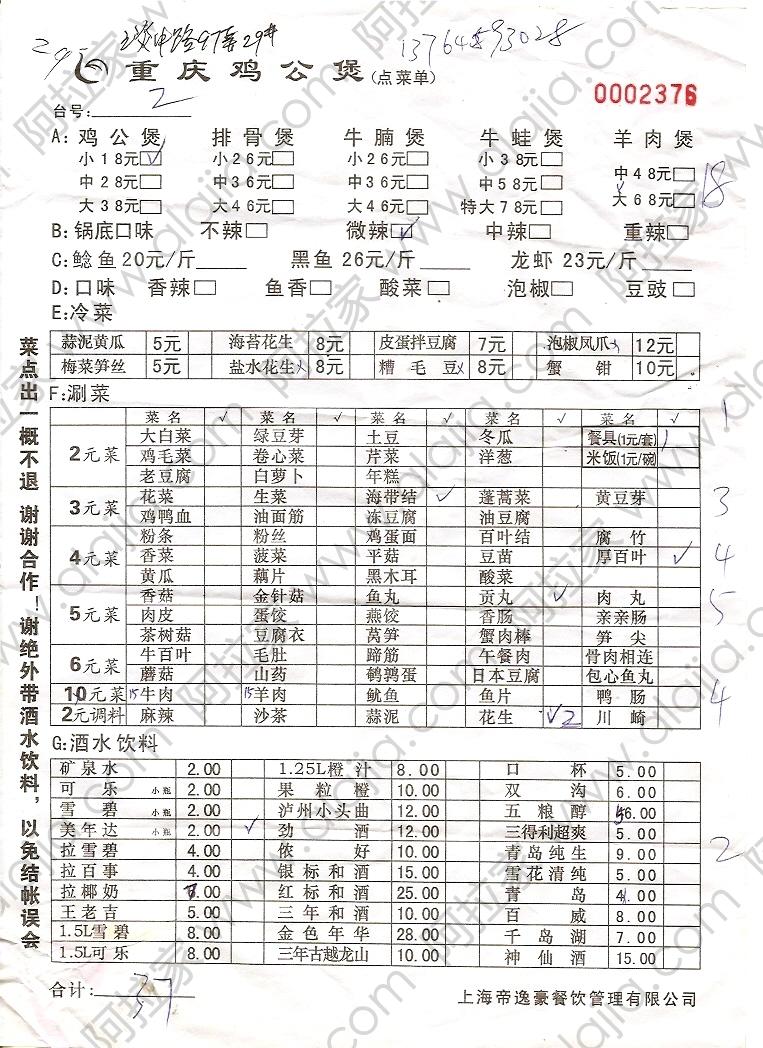 295
97弄29#
重庆鸡公煲(点菜单)
0002376
台号: 2
A: 鸡公煲 排骨煲 牛腩煲 牛蛙煲 羊肉煲
小18元□✓ 小26元□ 小26元□ 小38元□ 中48元□ 18
中28元□ 中36元□ 中36元□ 中58元□ 大68元□
大38元□ 大46元□ 大46元□ 特大78元□
B: 锅底口味 不辣□ 微辣□✓ 中辣□ 重辣□
C: 鲶鱼20元/斤 黑鱼26元/斤 龙虾23元/斤
D: 口味 香辣□ 鱼香□ 酸菜□ 泡椒□ 豆豉□
E: 冷菜
蒜泥黄瓜 5元 海苔花生 8元 皮蛋拌豆腐 7元 泡椒凤爪 12元
梅菜笋丝 5元 盐水花生 8元 糟毛豆 8元 蟹钳 10元
F: 涮菜
菜名 √ 菜名 √ 菜名 √ 菜名 √ 菜名 √
2元菜 大白菜 绿豆芽 土豆 冬瓜 餐具(1元/套) 1 1
鸡毛菜 卷心菜 芹菜 洋葱 米饭(1元/碗)
老豆腐 白萝卜 年糕
3元菜 花菜 生菜 海带结 ✓ 蓬蒿菜 黄豆芽 3
鸡鸭血 油面筋 冻豆腐 油豆腐
4元菜 粉条 粉丝 鸡蛋面 百叶结 腐竹
香菜 菠菜 平菇 豆苗 厚百叶 ✓ 4
黄瓜 藕片 黑木耳 酸菜
5元菜 香菇 金针菇 鱼丸 贡丸 ✓ 肉丸 5
肉皮 蛋饺 燕饺 香肠 亲亲肠
茶树菇 豆腐衣 莴笋 蟹肉棒 笋尖
6元菜 牛百叶 毛肚 蹄筋 午餐肉 骨肉相连
蘑菇 山药 鹌鹑蛋 日本豆腐 包心鱼丸
10元菜 15 牛肉 15 羊肉 鱿鱼 鱼片 鸭肠 4
2元调料 麻辣 沙茶 蒜泥 花生 ✓2 川崎
G: 酒水饮料
矿泉水 2.00 1.25L橙汁 8.00 口杯 5.00
可乐 小瓶 2.00 果粒橙 10.00 双沟 6.00
雪碧 小瓶 2.00 泸州小头曲 12.00 五粮醇 56.00
美年达 小瓶 2.00 ✓ 劲酒 12.00 三得利超爽 5.00
拉雪碧 4.00 侬好 10.00 青岛纯生 9.00 2
拉百事 4.00 银标和酒 15.00 雪花清纯 5.00
拉椰奶 7.00 红标和酒 25.00 青岛 4.00
王老吉 5.00 三年和酒 10.00 百威 8.00
1.5L雪碧 8.00 金色年华 28.00 千岛湖 7.00
1.5L可乐 8.00 三年古越龙山 10.00 神仙酒 15.00
合计: 37
上海帝逸豪餐饮管理有限公司
菜点出一概不退 谢谢合作！谢绝外带酒水饮料，以免结帐误会
阿拉家 www.alajia.com